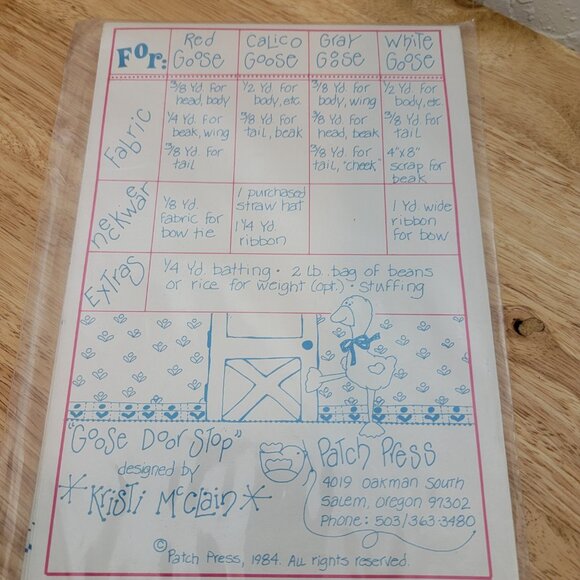 For: Red Goose Calico Goose Gray Goose White Goose
Fabric
3/8 Yd. for head, body
1/4 Yd. for beak, wing
3/8 Yd. for tail
1/2 Yd. for body, etc.
3/8 Yd. for tail, beak
3/8 Yd. for body, wing
3/8 Yd. for head, beak
3/8 Yd. for tail, "cheek"
1/2 Yd. for body, etc
3/8 Yd. for tail.
4"x8" scrap for beak
neckwear
1/8 Yd. fabric for bow tie
1 purchased straw hat
1 1/4 Yd. ribbon
1 Yd. wide ribbon for bow
Extras
1/4 Yd. batting · 2 lb. bag of beans
or rice for weight (opt.) · stuffing
"Goose Door Stop"
designed by
Kristi McClain
Patch Press
4019 Oakman South
Salem, Oregon 97302
Phone: 503/363-3480
© Patch Press, 1984. All rights reserved.